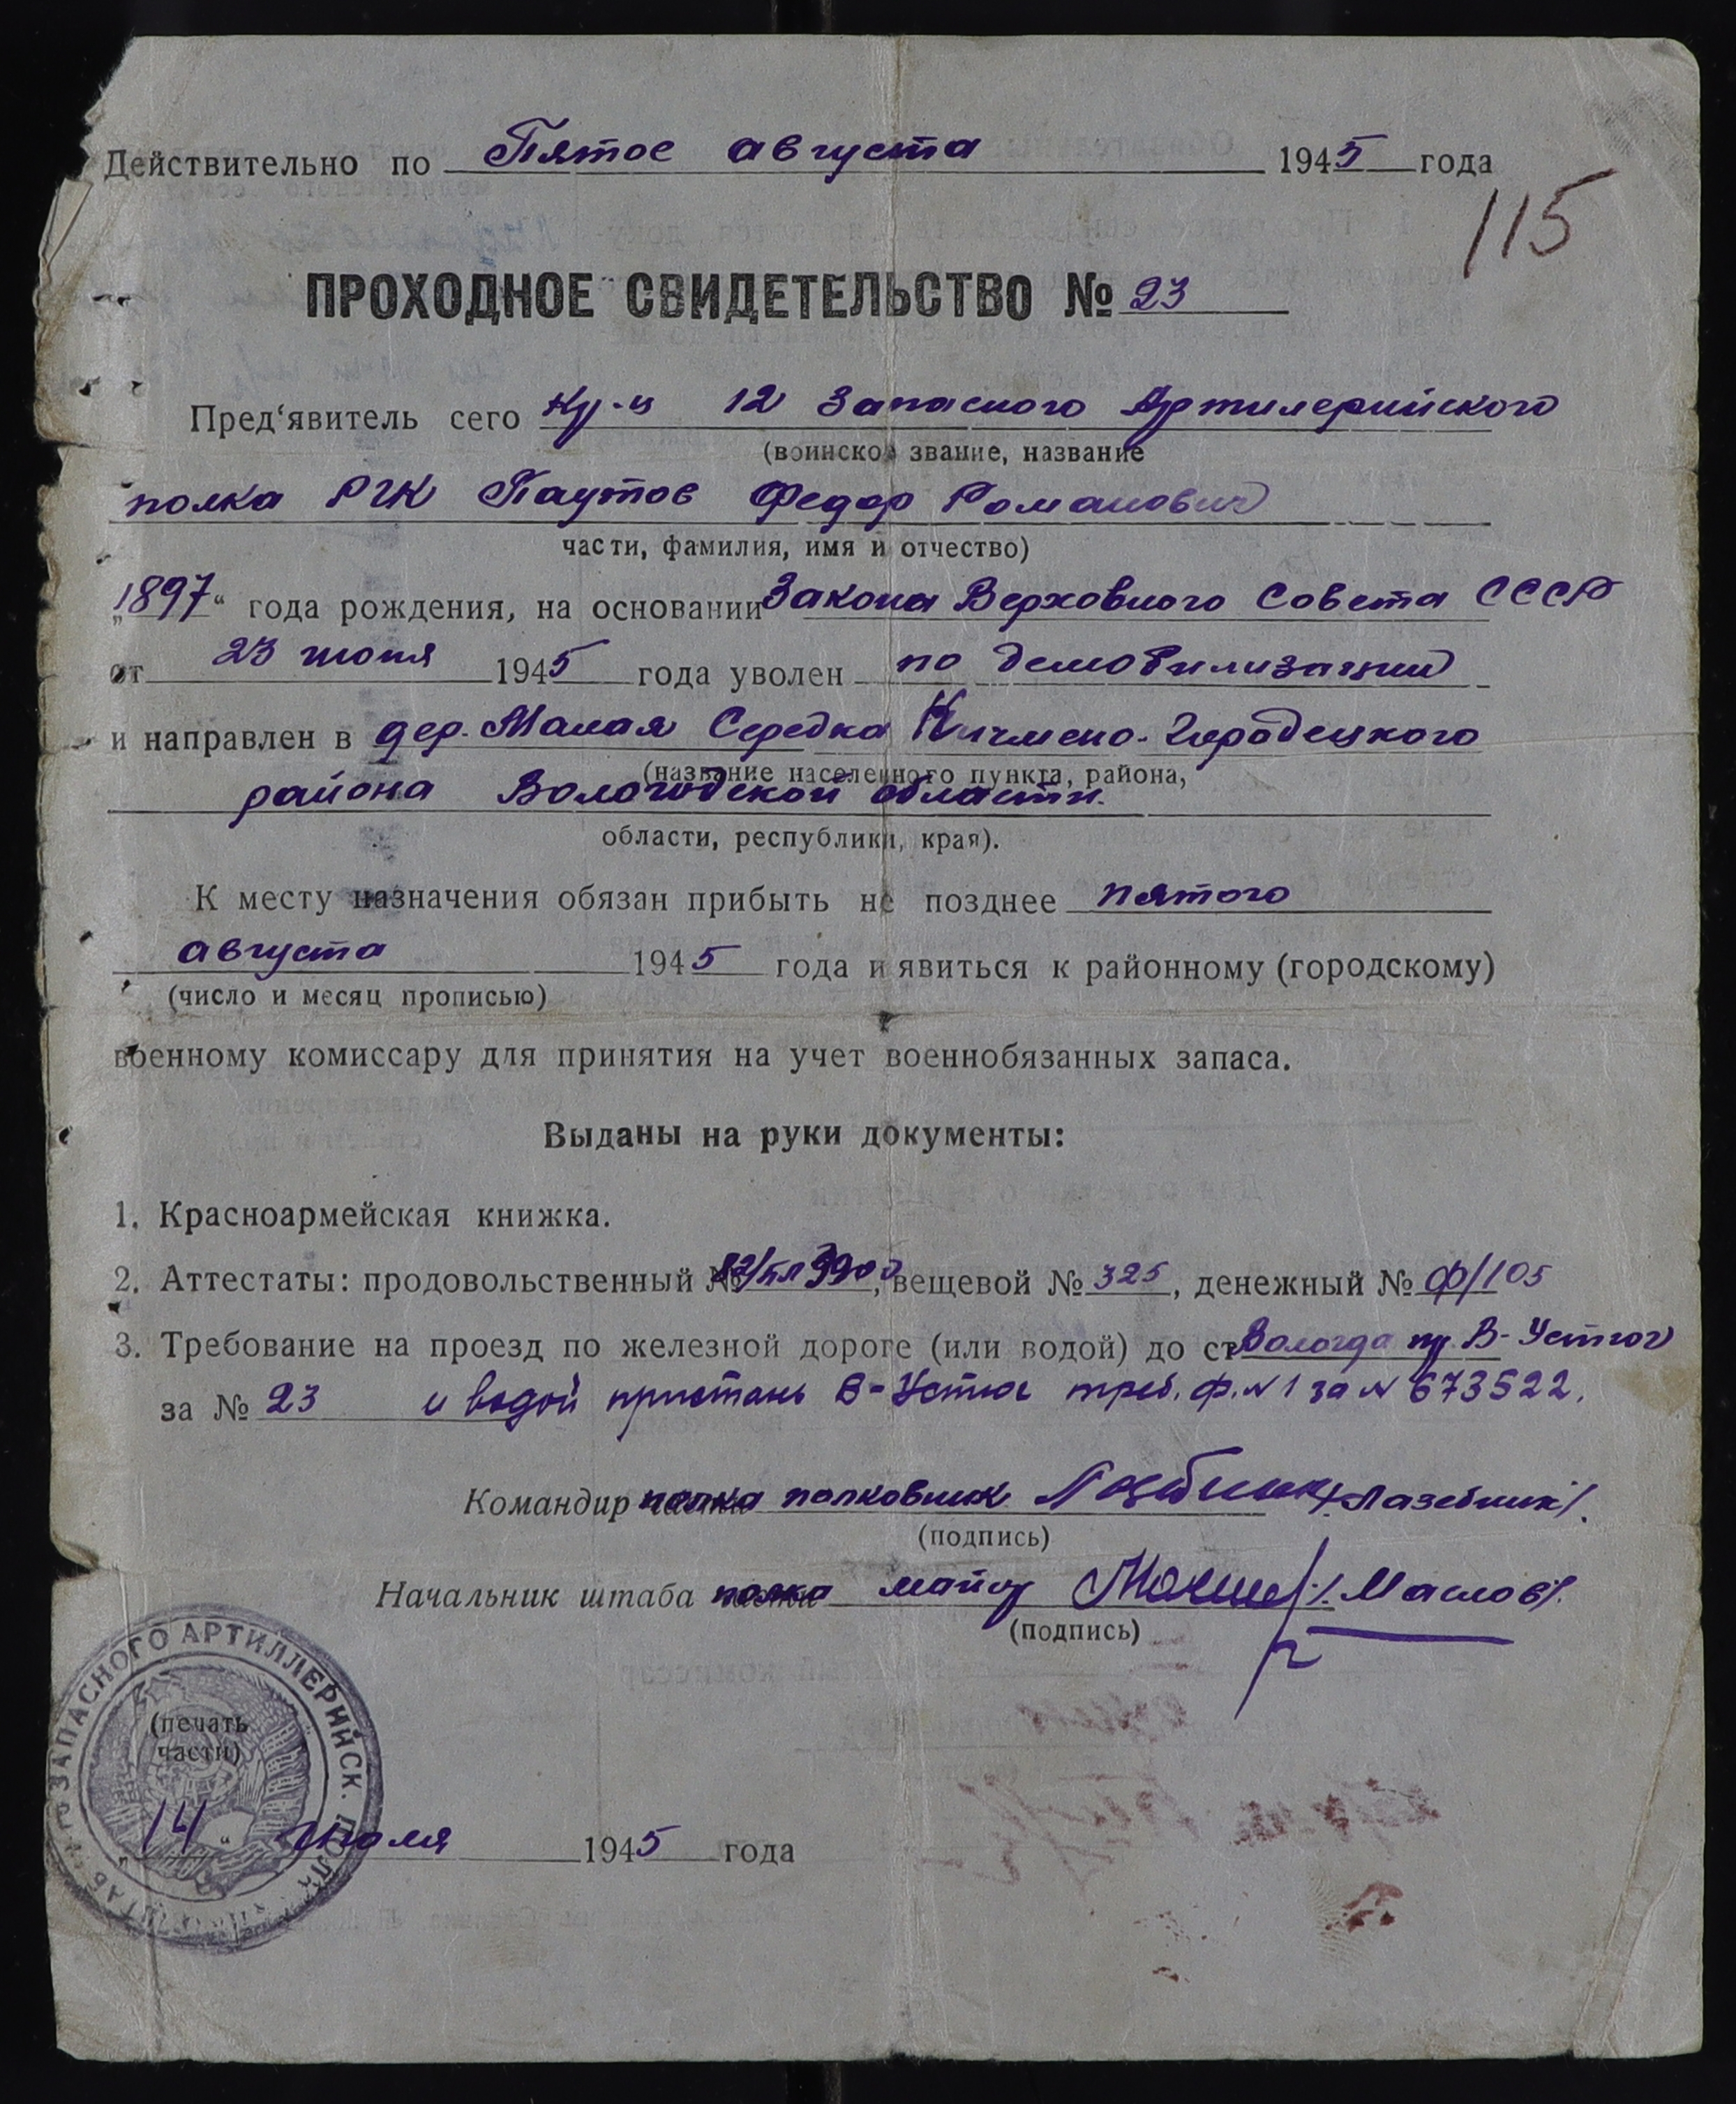 Действительно по Пятое августа 1945 года
115
ПРОХОДНОЕ СВИДЕТЕЛЬСТВО № 23
Пред‘явитель сего кр-ц 12 Запасного Артилерийского
(воинское звание, название
полка РГК Паутов Федор Романович
части, фамилия, имя и отчество)
„1897“ года рождения, на основании Закона Верховного Совета СССР
от 23 июня 1945 года уволен по демобилизации
и направлен в дер. Малая Середка Кичмено-Городецкого
(название населенного пункта, района,
района Вологодской области.
области, республики, края).
К месту назначения обязан прибыть не позднее пятого
августа 1945 года и явиться к районному (городскому)
(число и месяц прописью)
военному комиссару для принятия на учет военнобязанных запаса.
Выданы на руки документы:
1. Красноармейская книжка.
2. Аттестаты: продовольственный № , вещевой № 325, денежный № ф/105
3. Требование на проезд по железной дороге (или водой) до ст Вологда пр В-Устюг
за № 23 и водой пристань В-Устюг треб. ф. N 1 за N 673522.
Командир полка полковник /Лазебник/.
(подпись)
Начальник штаба полка майор /Маслов/.
(подпись)
ЗАПАСНОГО АРТИЛЛЕРИЙСК. ПОЛКА
(печать
части)
„14“ Июля 1945 года